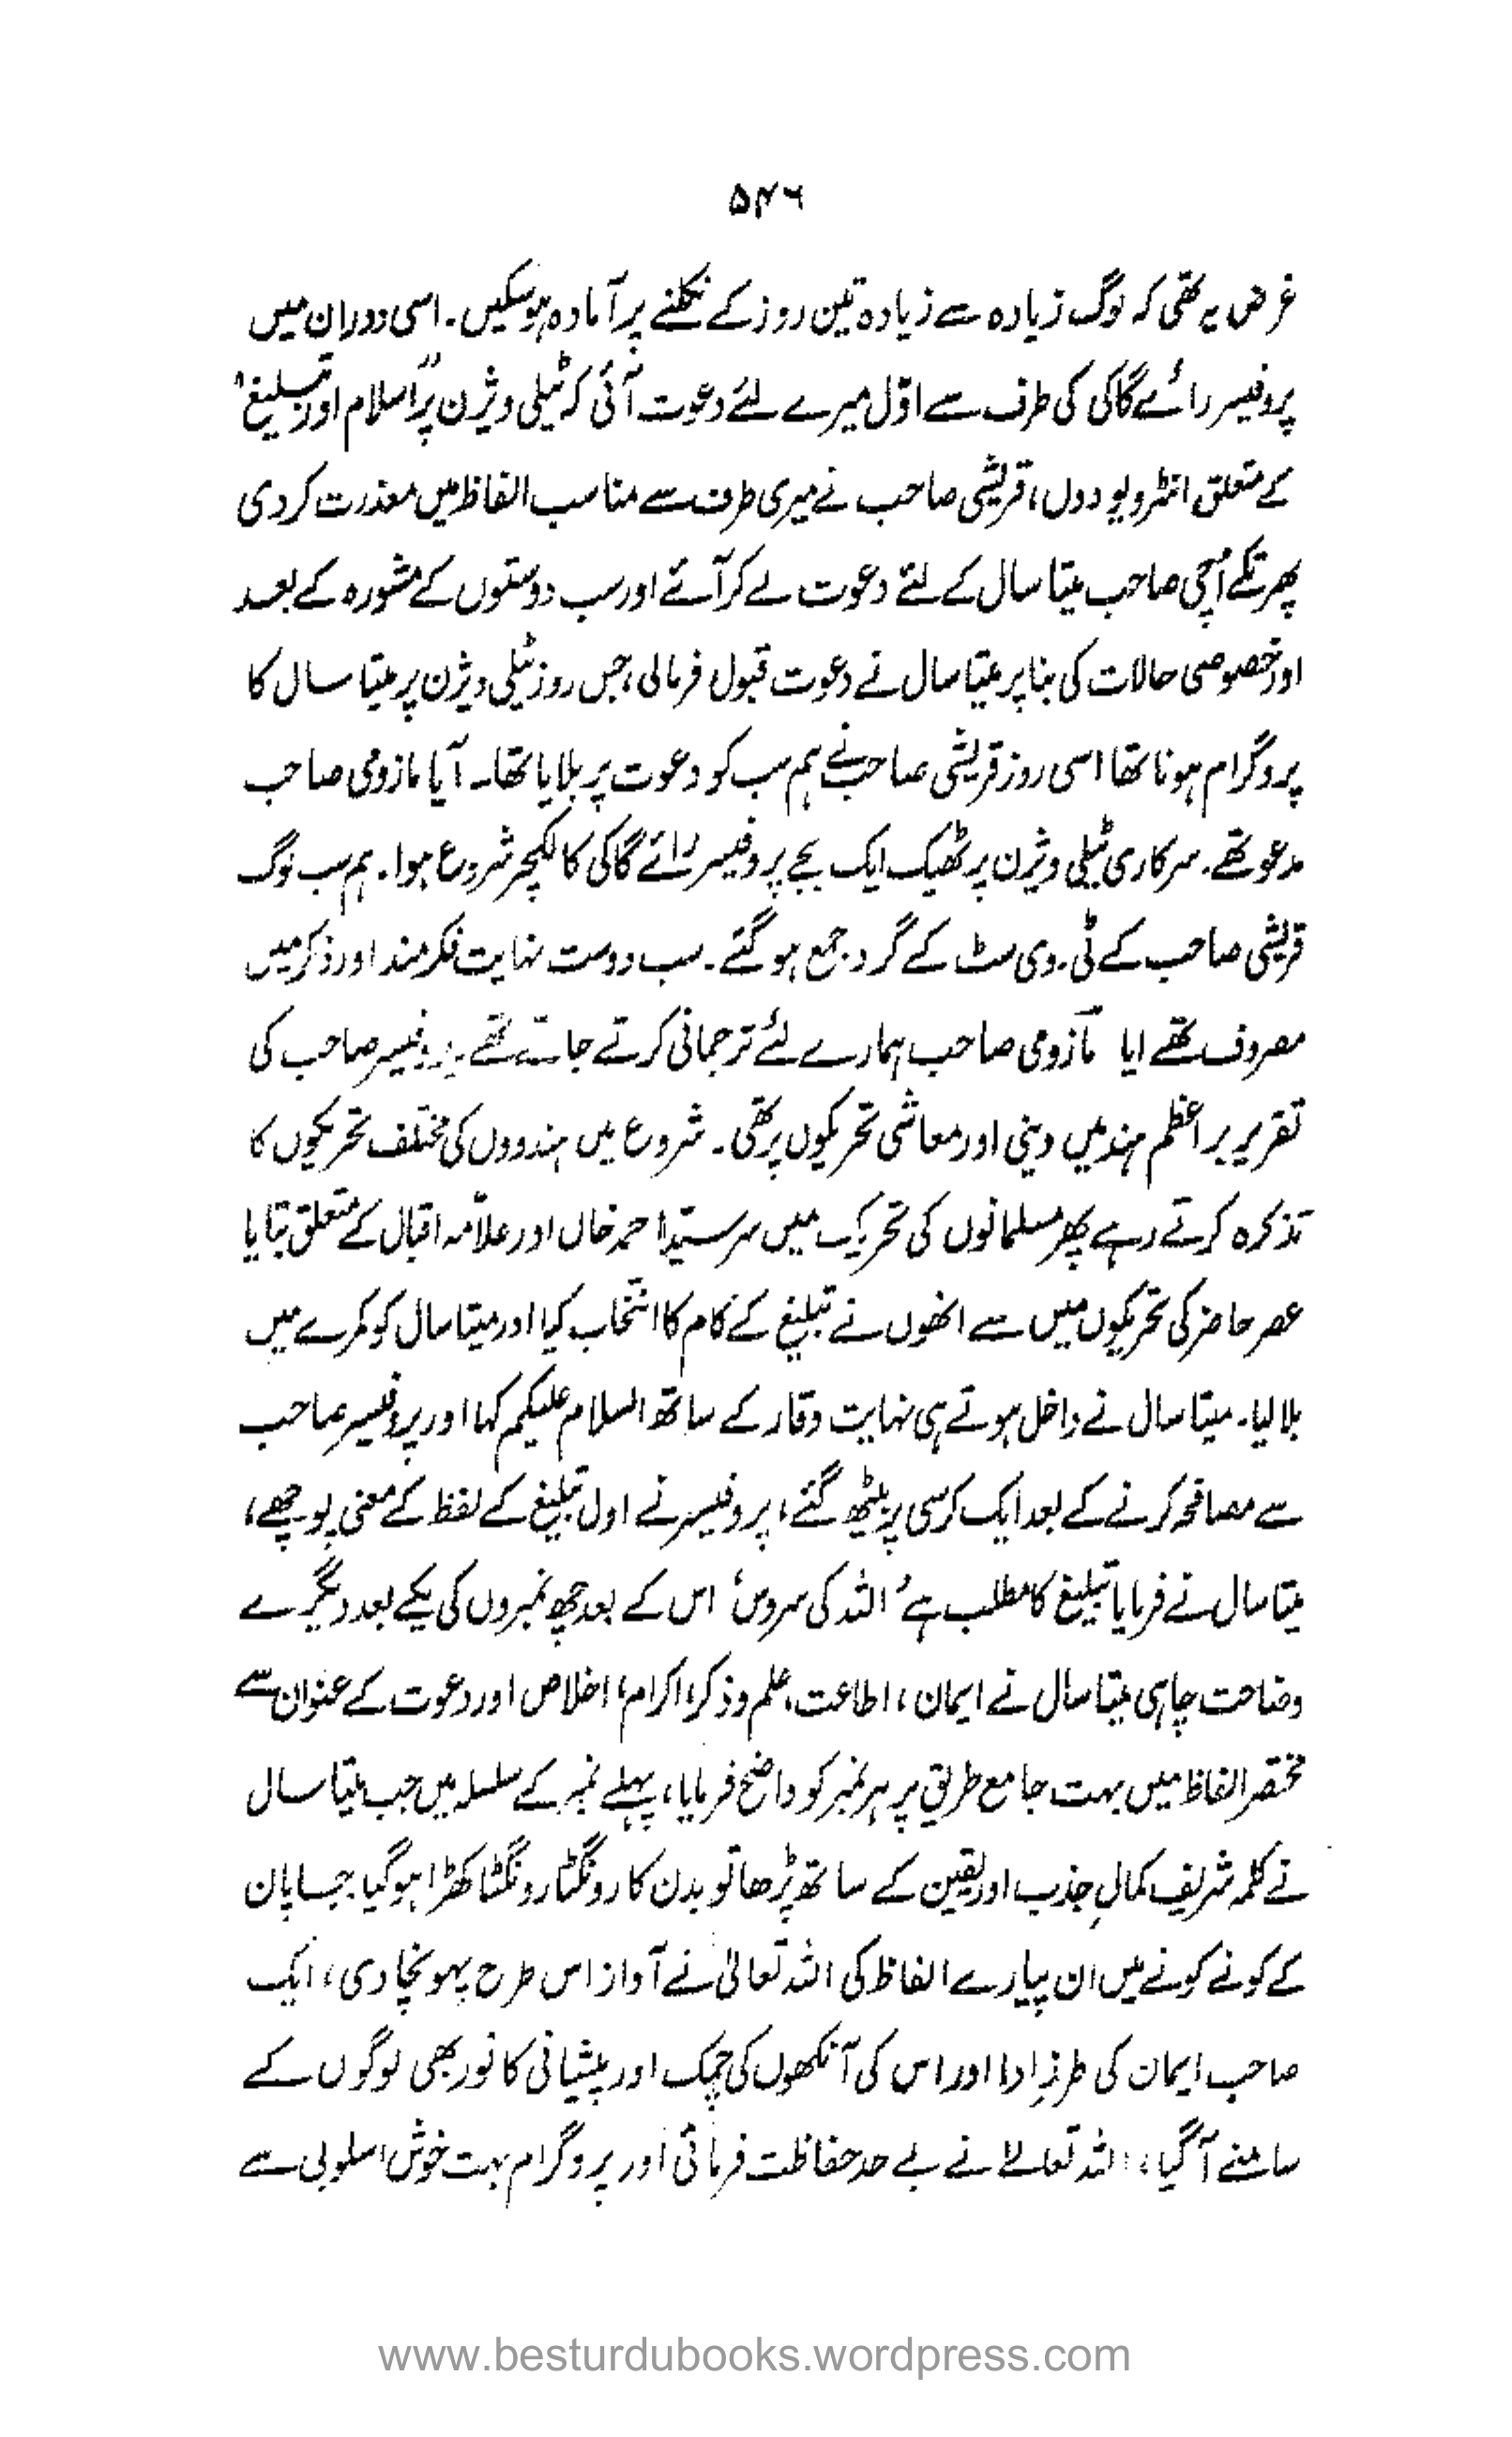 ۵۴۶
غرض یہ تھی کہ لوگ زیادہ سے زیادہ تین روز کے نکلنے پر آمادہ ہوسکیں۔ اسی دوران میں
پروفیسر رائے گاکی کی طرف سے اوّل میرے لئے دعوت آئی کہ ٹیلی ویژن پر "اسلام اور تبلیغ"
کے متعلق انٹرویو دوں، قریشی صاحب نے میری طرف سے مناسب الفاظ میں معذرت کردی
پھر صاحب میتا سال کے لئے دعوت لے کر آئے اور سب دوستوں کے مشورہ کے بعد
اور خصوصی حالات کی بنا پر میتا سال نے دعوت قبول فرمالی، جس روز ٹیلی ویژن پر میتا سال کا
پروگرام ہونا تھا اسی روز قریشی صاحب نے ہم سب کو دعوت پر بلایا تھا۔ آیا مازومی صاحب
مدعو تھے۔ سرکاری ٹیلی ویژن پر ٹھیک ایک بجے پروفیسر رائے گاکی کا لیکچر شروع ہوا۔ ہم سب لوگ
قریشی صاحب کے ٹی۔وی سٹ کے گرد جمع ہوگئے۔ سب دوست نہایت فکرمند اور ذکر میں
مصروف تھے ایا مازومی صاحب ہمارے لئے ترجمانی کرتے جاتے تھے۔ پروفیسر صاحب کی
تقریر براعظم ہند میں دینی اور معاشی تحریکوں پر تھی۔ شروع میں ہندووں کی مختلف تحریکوں کا
تذکرہ کرتے رہے پھر مسلمانوں کی تحریک میں سرسیّد احمد خاں اور علاّمہ اقبال کے متعلق بتایا
عصر حاضر کی تحریکوں میں سے انھوں نے تبلیغ کے کام کا انتخاب کیا اور میتا سال کو کمرے میں
بلالیا۔ میتا سال نے داخل ہوتے ہی نہایت وقار کے ساتھ السلام علیکم کہا اور پروفیسر صاحب
سے مصافحہ کرنے کے بعد ایک کرسی پر بیٹھ گئے، پروفیسر نے اول تبلیغ کے لفظ کے معنی پوچھے،
میتا سال نے فرمایا تبلیغ کا مطلب ہے 'اللہ کی سروس' اس کے بعد چھ نمبروں کی یکے بعد دیگرے
وضاحت چاہی میتا سال نے ایمان، اطاعت، علم و ذکر، اکرام، اخلاص اور دعوت کے عنوان سے
مختصر الفاظ میں بہت جامع طریق پر ہر نمبر کو واضح فرمایا، پہلے نمبر کے سلسلہ میں جب میتا سال
نے کلمہ شریف کمالِ جذب اور یقین کے ساتھ پڑھا تو بدن کا رونگٹا رونگٹا کھڑا ہوگیا۔ جاپان
کے کونے کونے میں ان پیارے الفاظ کی اللہ تعالیٰ نے آواز اس طرح پہونچادی، ایک
صاحب ایمان کی طرزِ ادا اور اس کی آنکھوں کی چمک اور پیشانی کا نور بھی لوگوں کے
سامنے آگیا، اللہ تعالےٰ نے بے حد حفاظت فرمائی اور پروگرام بہت خوش اسلوبی سے
www.besturdubooks.wordpress.com